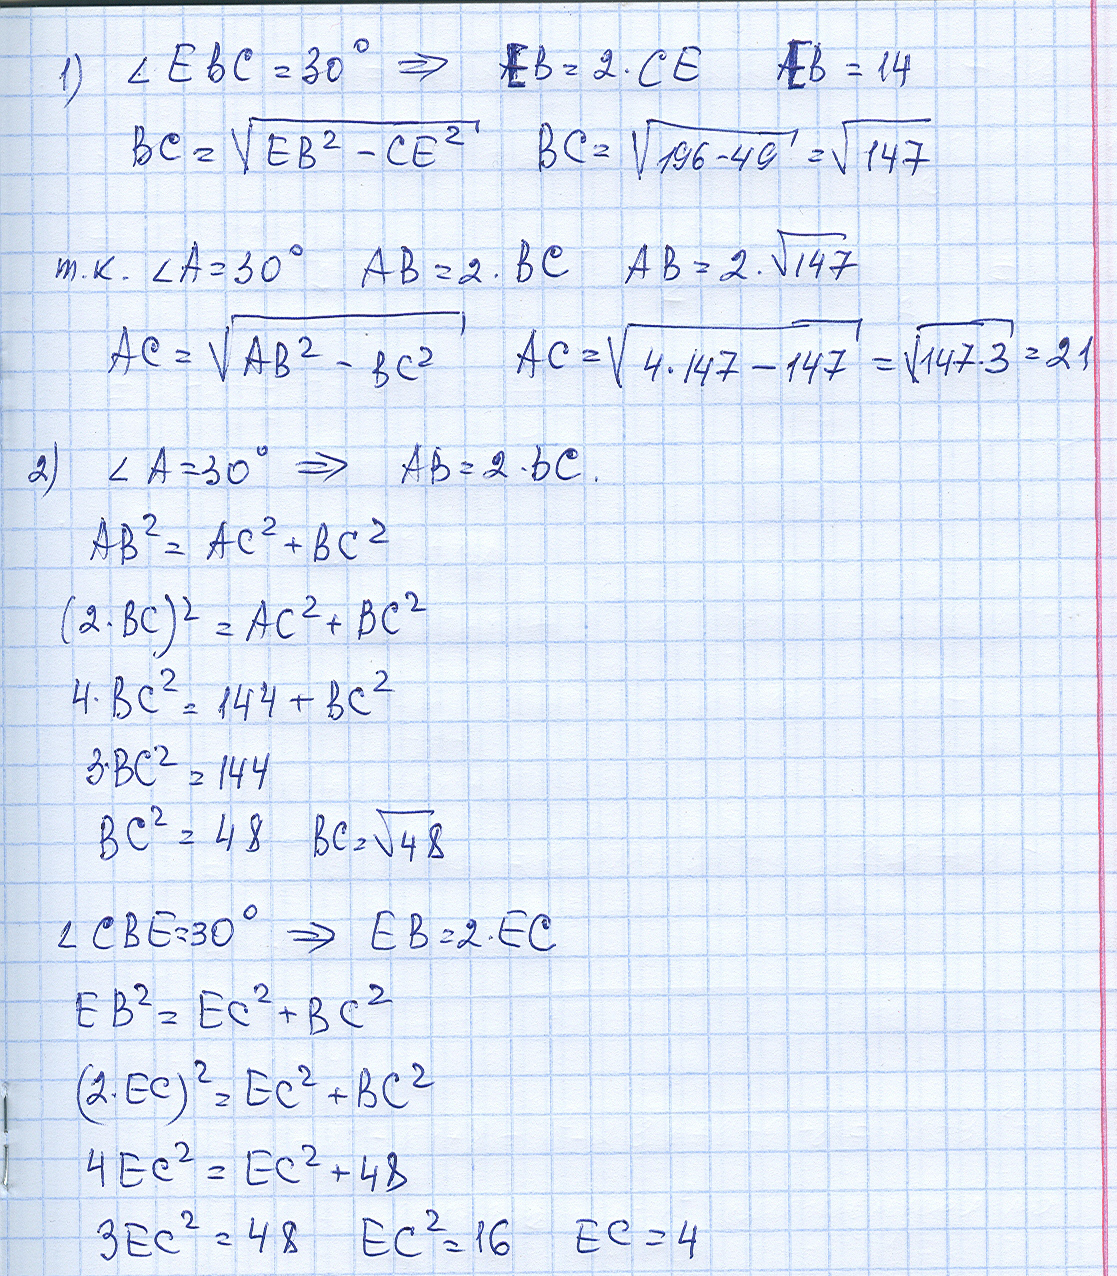 1) ∠EBC = 30° ⇒ EB = 2·CE EB = 14
BC = √(EB² - CE²) BC = √(196-49) = √147
т.к. ∠A = 30° AB = 2·BC AB = 2·√147
AC = √(AB² - BC²) AC = √(4·147 - 147) = √(147·3) = 21
2) ∠A = 30° ⇒ AB = 2·BC.
AB² = AC² + BC²
(2·BC)² = AC² + BC²
4·BC² = 144 + BC²
3·BC² = 144
BC² = 48 BC = √48
∠CBE = 30° ⇒ EB = 2·EC
EB² = EC² + BC²
(2·EC)² = EC² + BC²
4EC² = EC² + 48
3EC² = 48 EC² = 16 EC = 4